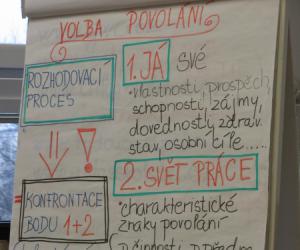 VOLBA POVOLÁNÍ
ROZHODOVACÍ
PROCES
1. JÁ své
• vlastnosti, prospěch,
schopnosti, zájmy,
dovednosti, zdrav.
stav, osobní cíle.....
⇓ !
2. SVĚT PRÁCE
KONFRONTACE
BODU 1+2
• charakteristické
znaky povolání